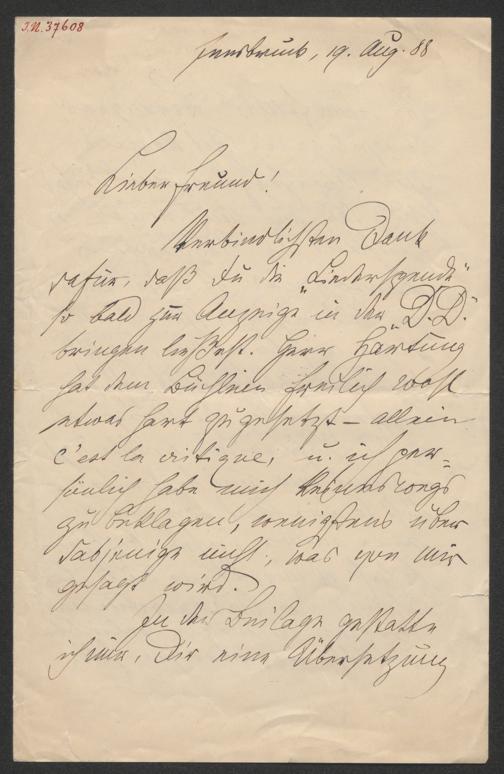 J.N. 37608
Innsbruck, 19. Aug. 88
Lieber Freund!
Verbindlichsten Dank
dafür, daß Du die „Liederspende"
so bald zur Anzeige in der „D. D."
bringen ließest. Herr Hartung
hat dem Büchlein freilich wohl
etwas hart zugesetzt – allein
c'est la critique, u. ich per-
sönlich habe mich keineswegs
zu beklagen, wenigstens über
dasjenige nicht, was von mir
gesagt wird.
In der Beilage gestatte
ich mir, Dir eine Übersetzung